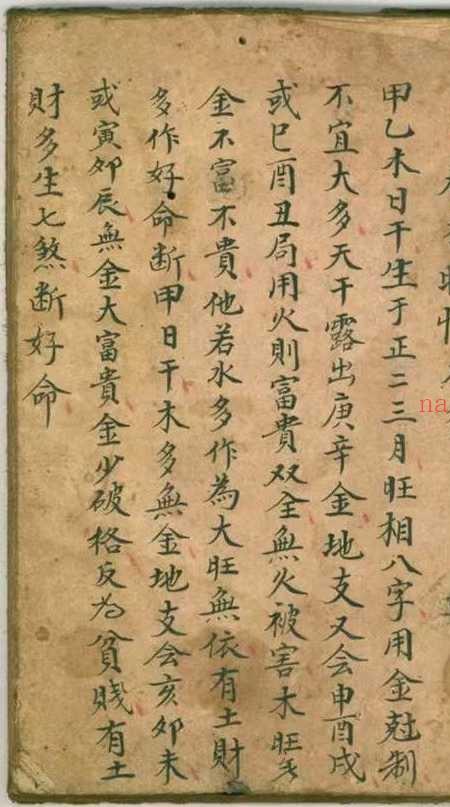 甲乙木日干生于正二三月旺相八字用金尅制
不宜大多天干露出庚辛金地支又会申酉戌
或巳酉丑局用火則富貴双全無火被害木旺
金不富不貴他若水多作為大旺無依有土財
多作好命断甲日干木多無金地支会亥卯未
或寅卯辰無金大富貴金少破格反为貧賤有土
財多生七煞断好命
na